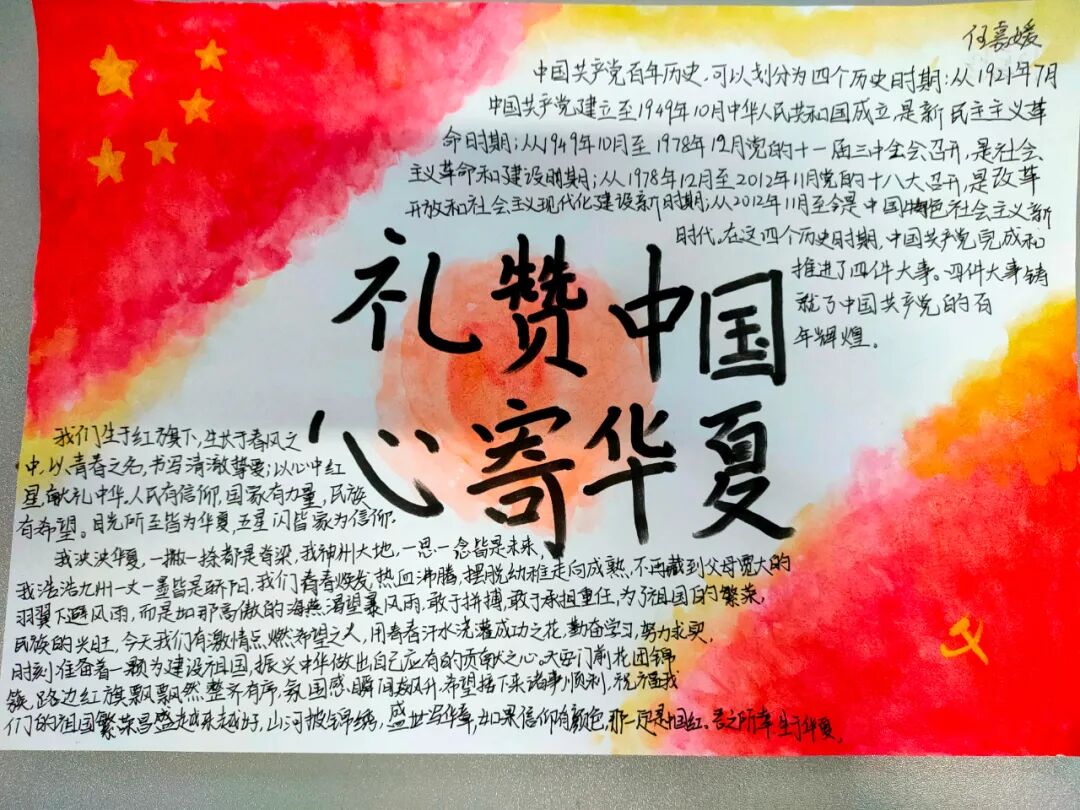 任嘉媛
中国共产党百年历史,可以划分为四个历史时期:从1921年7月
中国共产党建立至1949年10月中华人民共和国成立,是新民主主义革
命时期;从1949年10月至1978年12月党的十一届三中全会召开,是社会
主义革命和建设时期;从1978年12月至2012年11月党的十八大召开,是改革
开放和社会主义现代化建设新时期;从2012年11月至今是中国特色社会主义新
时代。在这四个历史时期,中国共产党完成和
推进了四件大事。四件大事铸
就了中国共产党的百
年辉煌。
礼赞中国
心寄华夏
我们生于红旗下,生长于春风之
中,以青春之名,书写清澈挚爱;以心中红
星献礼中华。人民有信仰,国家有力量,民族
有希望。目光所至皆为华夏,五星闪皆家为信仰.
我泱泱华夏,一撇一捺都是脊梁,我神州大地,一思一念皆是未来,
我浩浩九州一丈一墨皆是骄阳,我们青春焕发,热血沸腾,摆脱幼稚走向成熟,不再藏到父母宽大的
羽翼下避风雨,而是如那高傲的海燕渴望暴风雨,敢于拼搏,敢于承担重任,为了祖国的繁荣,
民族的兴旺,今天我们有激情点燃希望之火,用青春汗水浇灌成功之花,勤奋学习,努力求实,
时刻准备着一颗为建设祖国,振兴中华做出自己应有的贡献之心。天安门前花团锦
簇,路边红旗飘飘然整齐有序,氛围感瞬间拔升,希望接下来诸事顺利,祝福我
们的祖国繁荣昌盛越来越好,山河披锦绣,盛世写华章,如果信仰有颜色,那一定是中国红。吾之所幸,生于华夏。